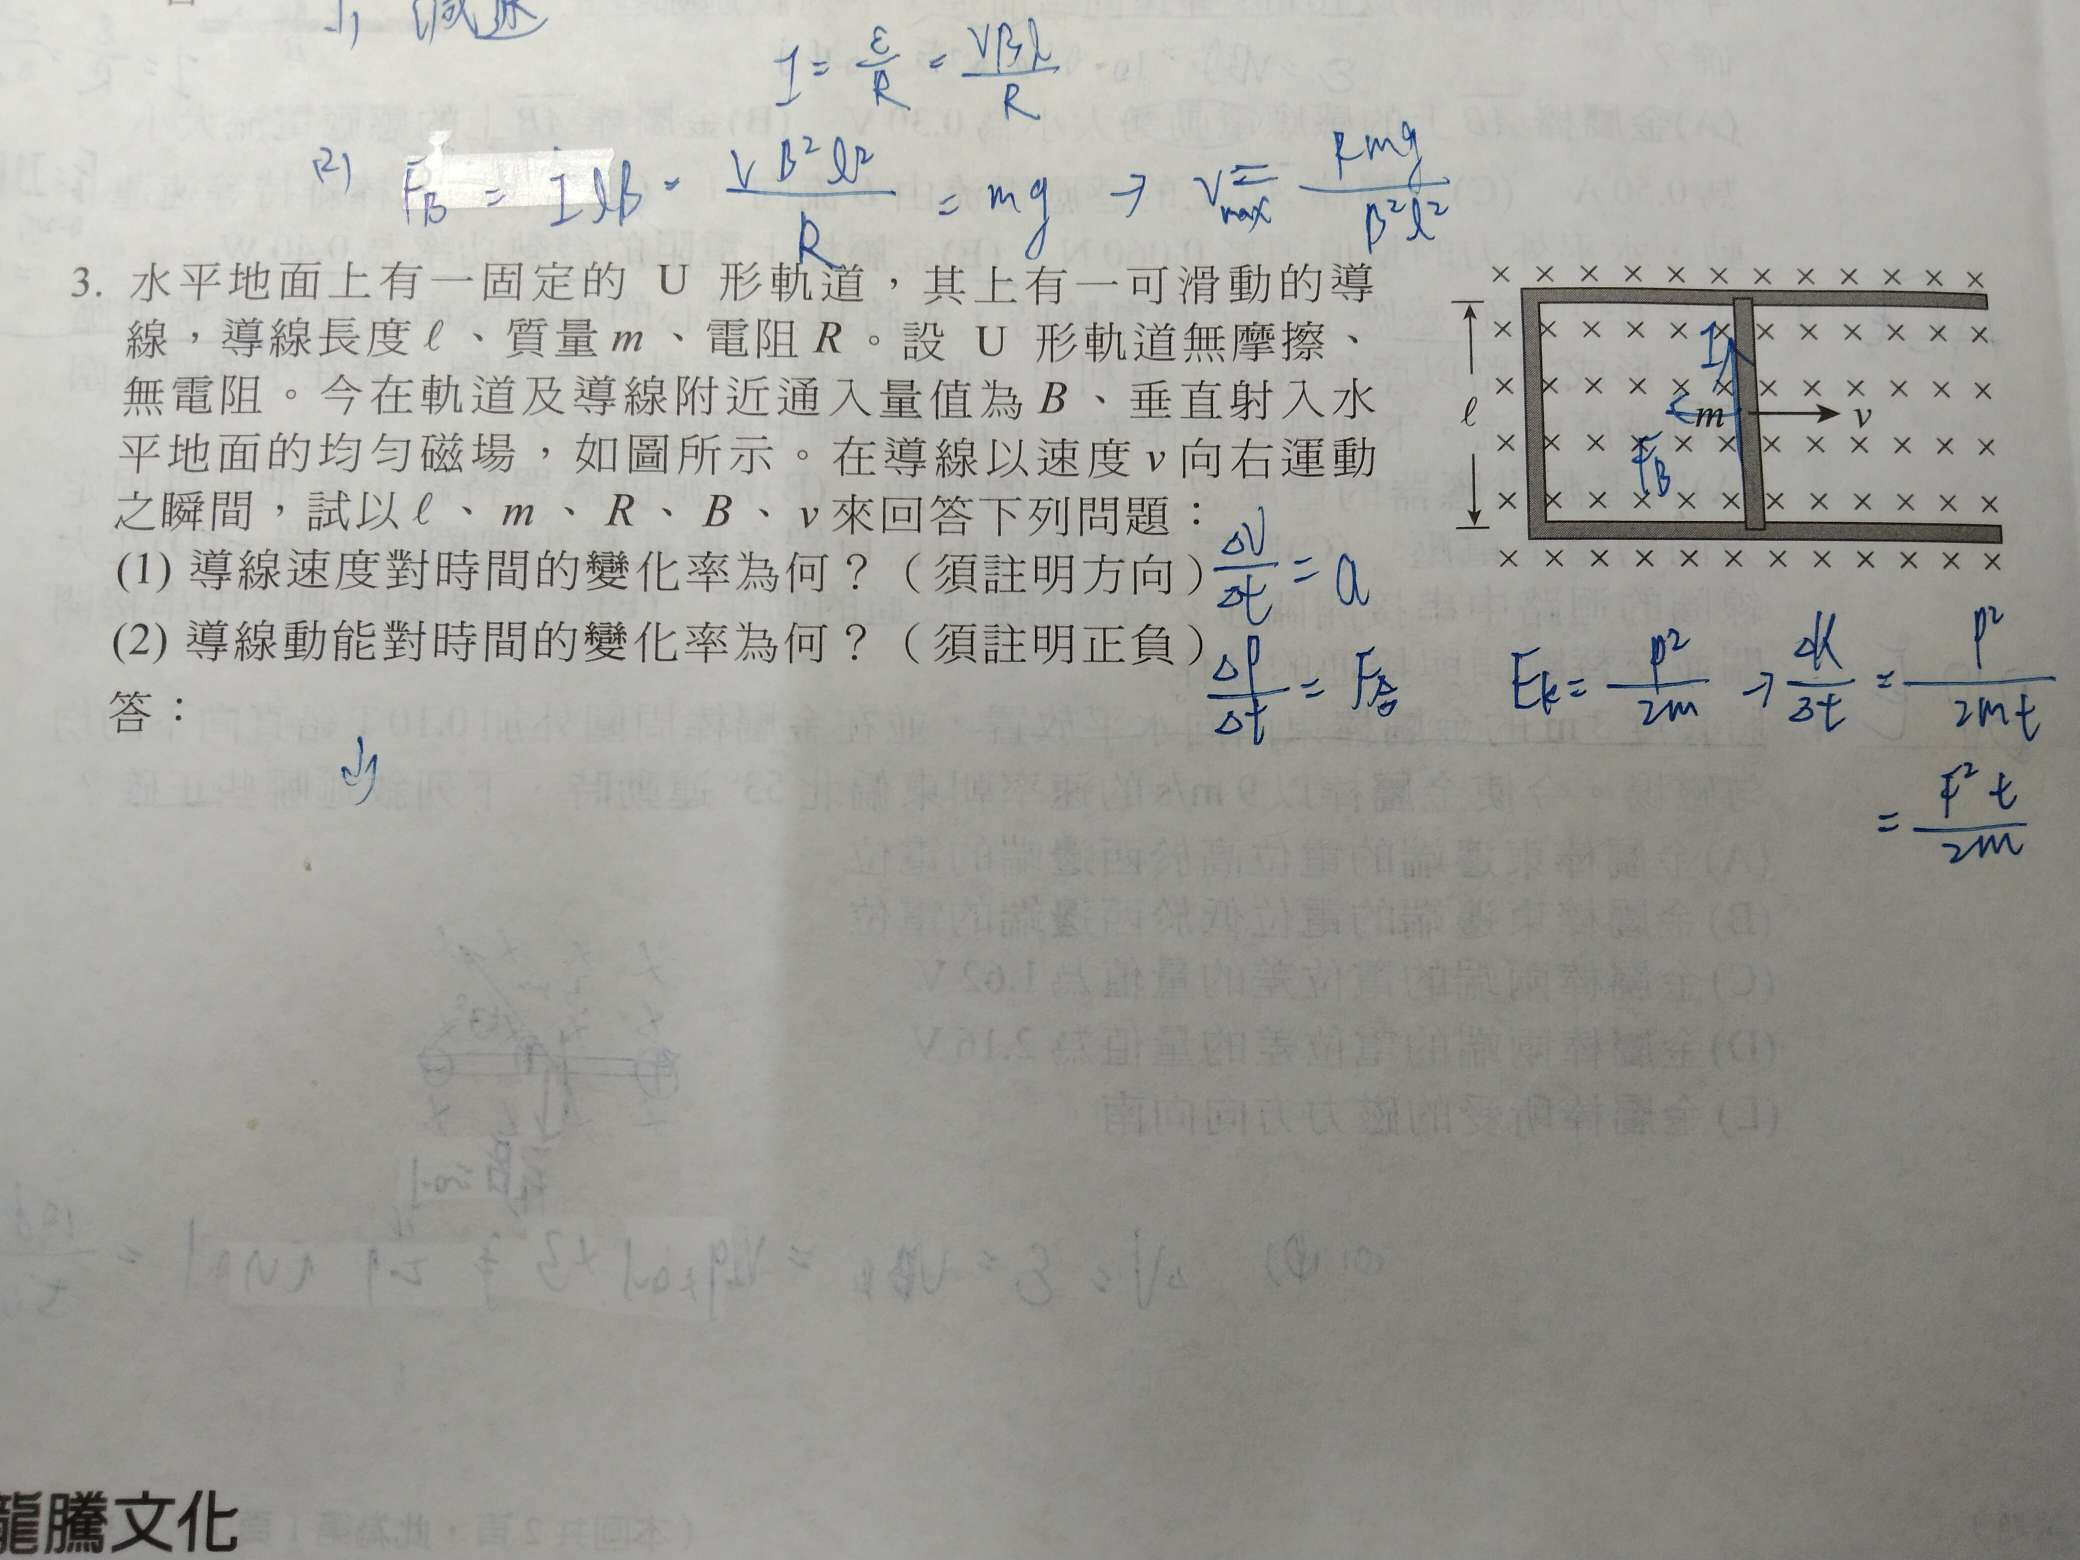 (1) 減速
I = ε/R = VBl/R
(2) F_B = IlB = VB²l²/R = mg → v_max = Rmg/B²l²
3. 水平地面上有一固定的 U 形軌道，其上有一可滑動的導
線，導線長度 ℓ、質量 m、電阻 R。設 U 形軌道無摩擦、
無電阻。今在軌道及導線附近通入量值為 B、垂直射入水
平地面的均勻磁場，如圖所示。在導線以速度 v 向右運動
之瞬間，試以 ℓ、m、R、B、v 來回答下列問題：
(1) 導線速度對時間的變化率為何？（須註明方向） ΔV/Δt = a
(2) 導線動能對時間的變化率為何？（須註明正負） ΔP/Δt = F E_k = P²/2m → ΔK/Δt = P²/2mt
= F²t/2m
答：
(1)
ℓ
I
m
v
F_B
龍騰文化